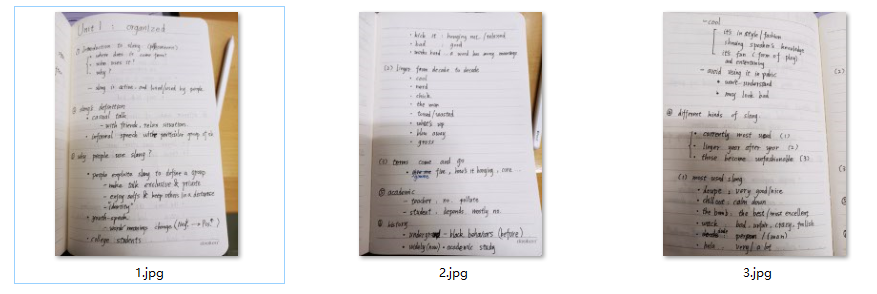 Unit 1 : organized
① Introduction to slang (differences)
• where does it come from?
• who uses it?
• why?
– slang is active, and lived/used by people
② slang's definition
• casual talk
– with friends, relax situation
• informal speech with particular group of
③ why people use slang?
• people explain slang to define a group
– make talk exclusive & private
– enjoy selfs & keep others in a distance
– "identity"
• youth speak
– words' meanings change
• college students
• kick it : hanging out /relaxed
• bad : good
a word has many meanings
(2) linger from decade to decade
• cool
• nerd
• chick
• the man
• toned/wasted
• what's up
• blow away
• gross
(3) terms come and go
• fine, how's it hanging,
⑤ academic
– teacher : no. pollute
– student : depends. mostly no.
⑥ history
• underground – black behaviors (before)
• widely (now) • academic study
– cool
it's in style/fashion
showing speaker's knowledge
it's fun (form of play)
and entertaining
– avoid using it in public
• won't understand
• may look bad
④ different kinds of slang
• currently most used (1)
• linger year after year (2)
• those become unfashionable (3)
(1) most used slang
• dope : very good/nice
• chill out : calm down
• the bomb : the best/most excellent
• wack : bad, unfair, crazy, foolish
• dude : person / (man)
• hella : very/ a lot
1.jpg
2.jpg
3.jpg